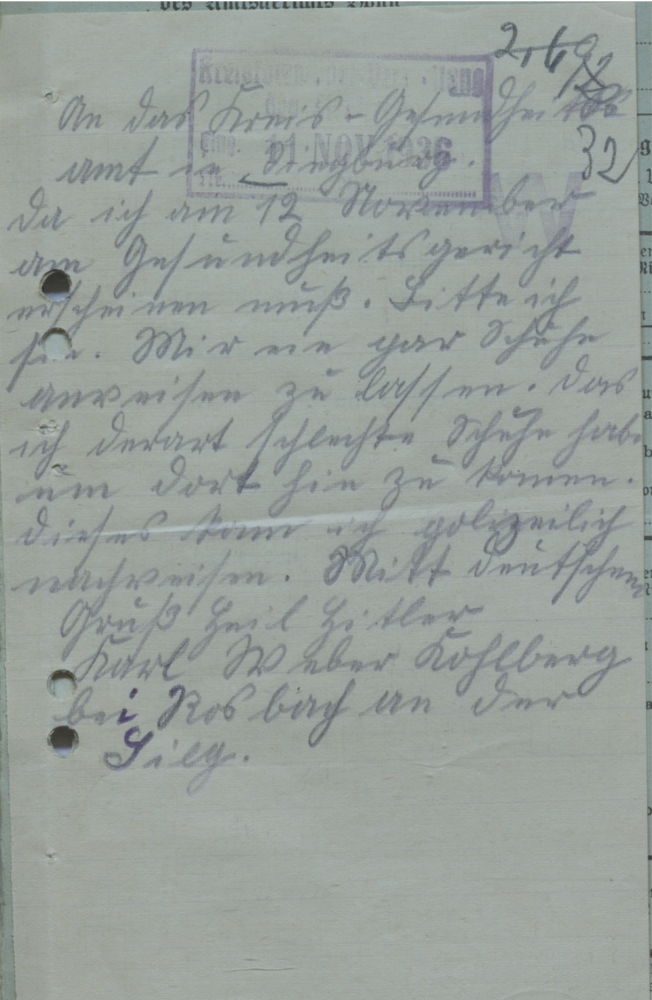 des Amtsgerichts Bonn
2169
32
NOV. 1936
An das Kreis-Gesundheits
amt in Siegburg.
Da ich am 12 November
am Gesundheitsgericht
erscheinen muß. Bitte ich
sie. Mir ein par Schuhe
anweisen zu lassen. Das
ich derart schlechte Schuhe habe
um dort hin zu komen.
Dieses kann ich polizeilich
nachweisen. Mitt deutschem
Gruß Heil Hitler
Karl Weber Kohlberg
bei Rosbach an der
Sieg.